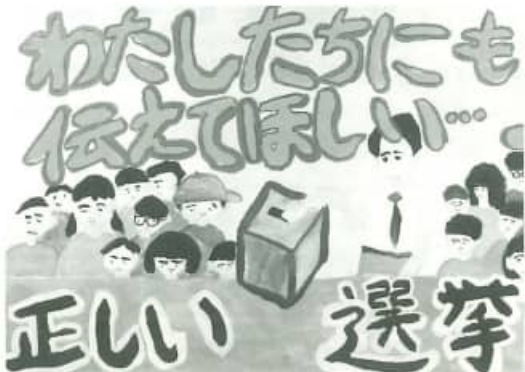 わたしたちにも
伝えてほしい…
正しい選挙